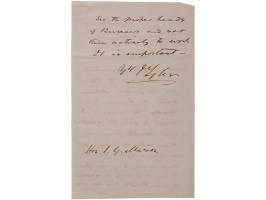 See the proper heads
of Bureaus and set
them actively to work
It is important –
J Tyler
Hon J. Y. Mason